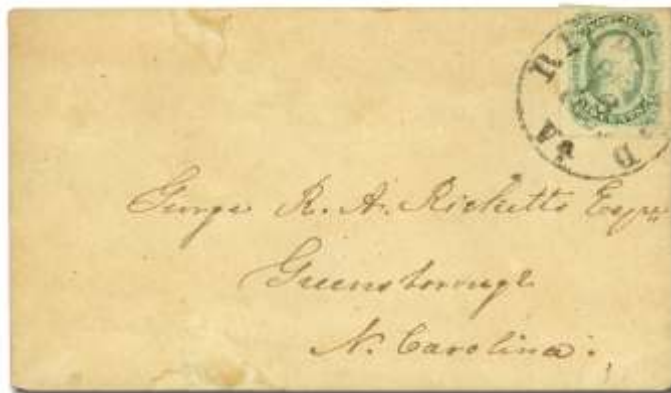 RI D
VA
George R. A. Ricketts Esqre
Greensborough
N. Carolina.